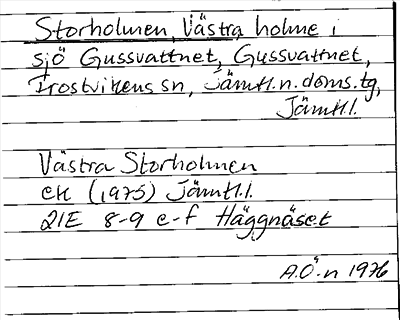 Storholmen, Västra holme i
sjö Gussvattnet, Gussvattnet,
Frostvikens sn, Jämtl.n.doms.tg,
Jämtl.l.
Västra Storholmen
ek (1975) Jämtl.l.
21E 8-9 e-f Häggnäset
A.Ö-n 1976